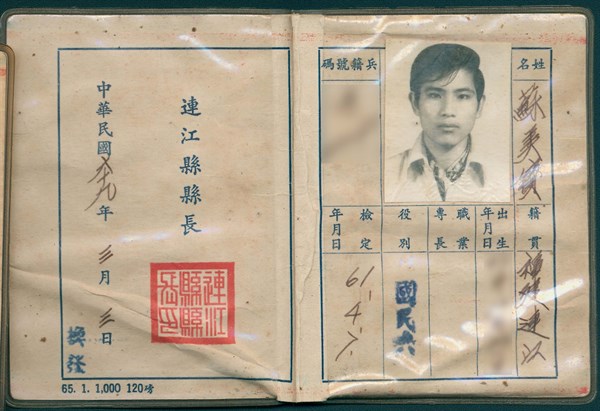 姓名
蘇美
籍貫
福建連江
出生年月日
職業
專長
役別
國民兵
檢定年月日
61.4.1.
兵籍號碼
連江縣縣長
連江縣縣長印
中華民國 年 三月 三日
換發
65. 1. 1,000 120磅